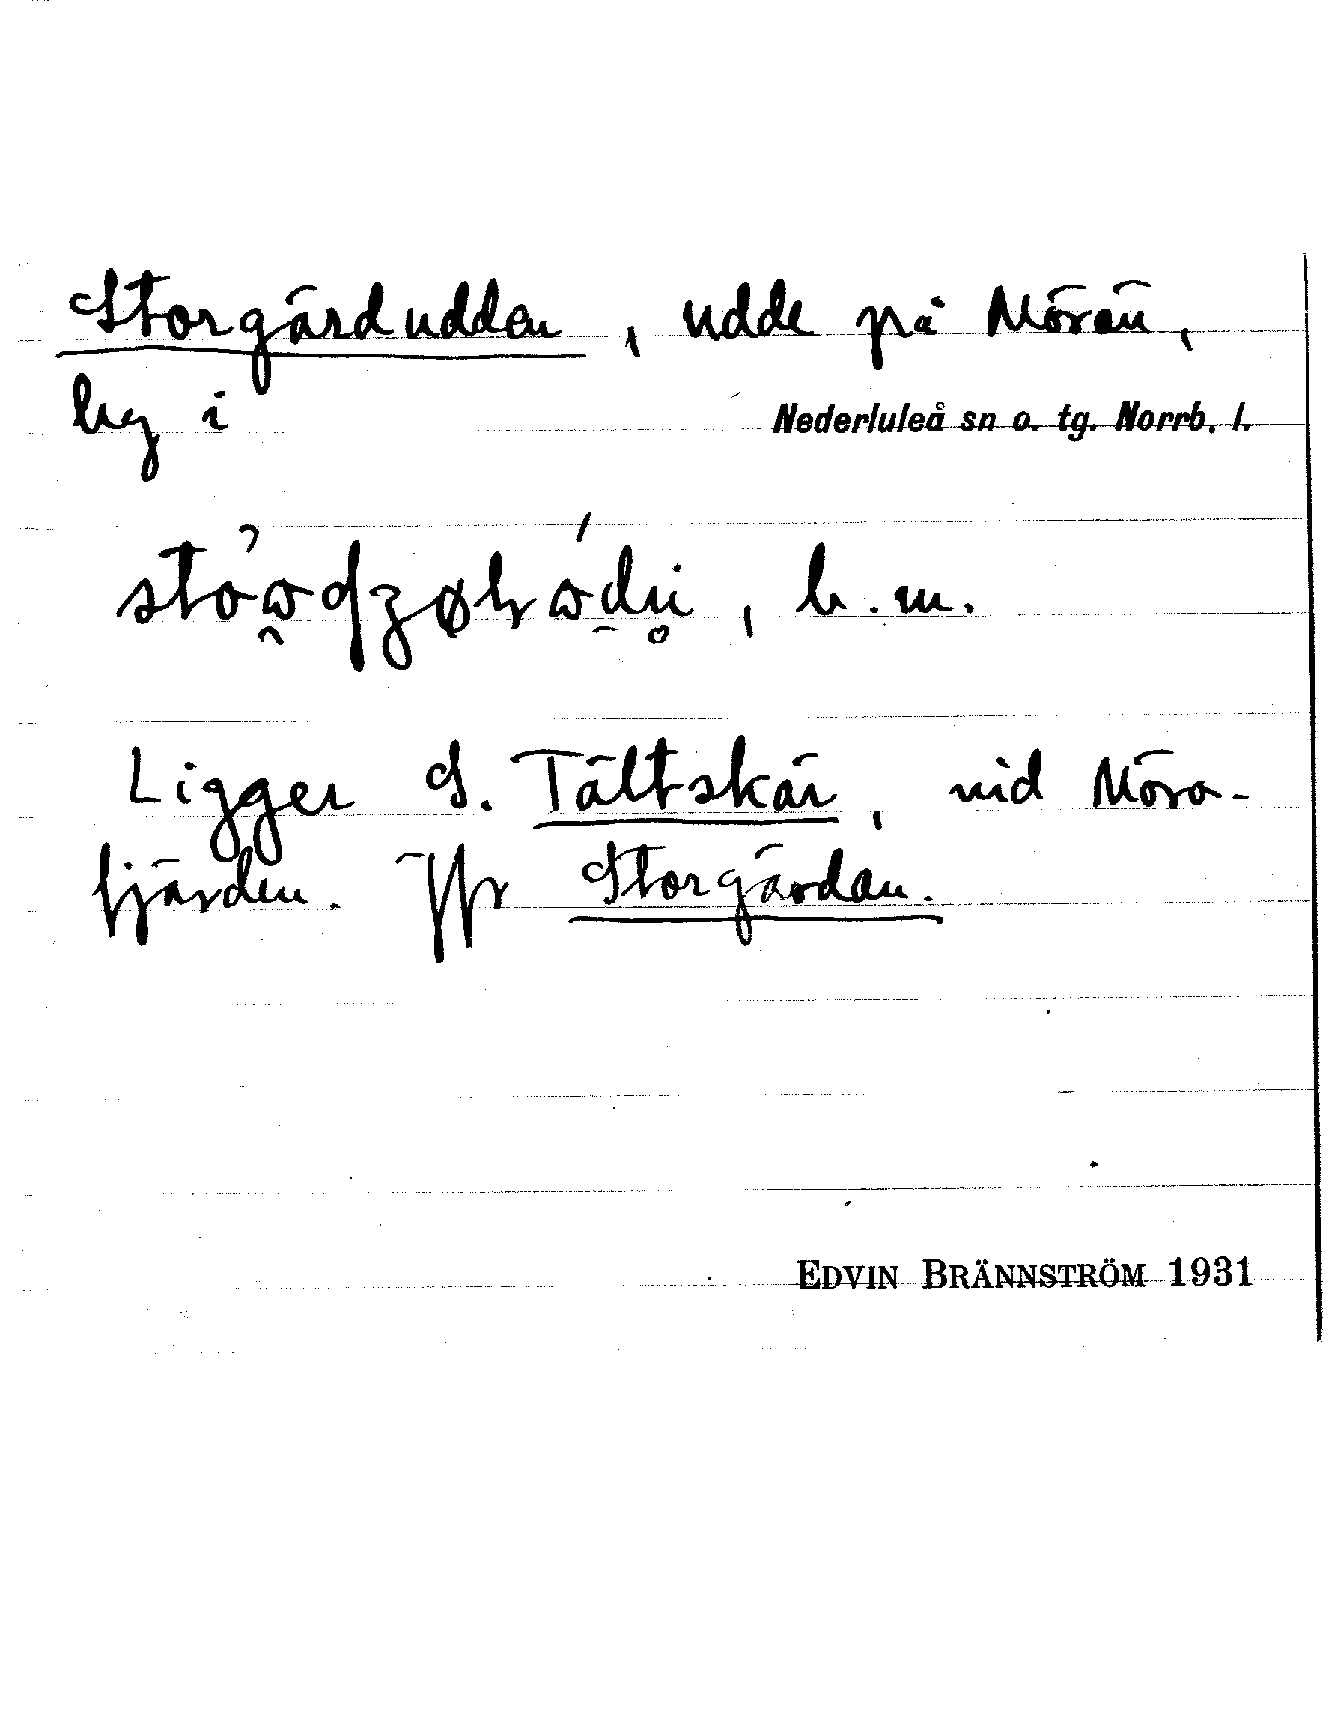 Storgärdudden, udde på Mörön,
by i Nederluleå sn o. tg. Norrb. l.
b. m.
Ligger S. Tältskär, vid Mörö-
fjärden. Jfr Storgärdan.
EDVIN BRÄNNSTRÖM 1931